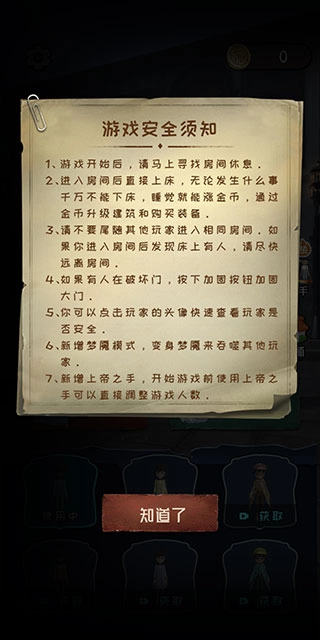 0
游戏安全须知
1、游戏开始后，请马上寻找房间休息．
2、进入房间后直接上床，无论发生什么事
千万不能下床，睡觉就能涨金币，通过
金币升级建筑和购买装备．
3、请不要尾随其他玩家进入相同房间．如
果你进入房间后发现床上有人，请尽快
远离房间．
4、如果有人在破坏门，按下加固按钮加固
大门．
5、你可以点击玩家的头像快速查看玩家是
否安全．
6、新增梦魇模式，变身梦魇来吞噬其他玩
家．
7、新增上帝之手，开始游戏前使用上帝之
手可以直接调整游戏人数．
使用中
获取
知道了
获取
获取